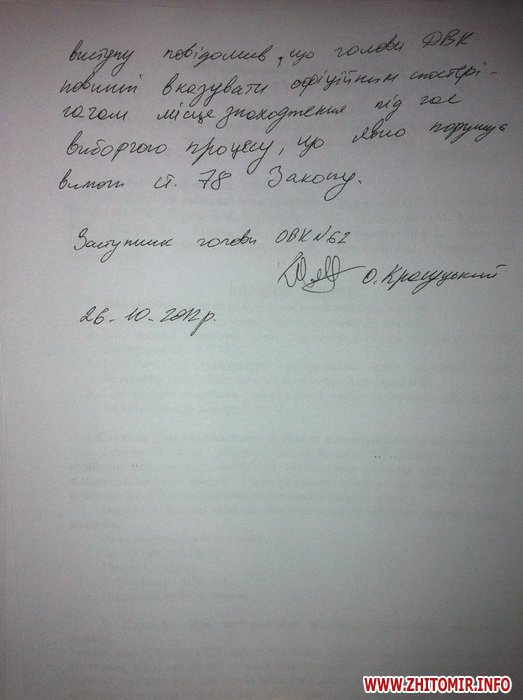 виступу повідомив, що голови ДВК
повинні вказувати офіційним спостері-
гачам місце знаходження під час
виборчого процесу, що явно порушує
вимоги ст. 78 Закону.
Заступник голови ОВК №62
О.
26-10-2012р.
WWW.ZHITOMIR.INFO